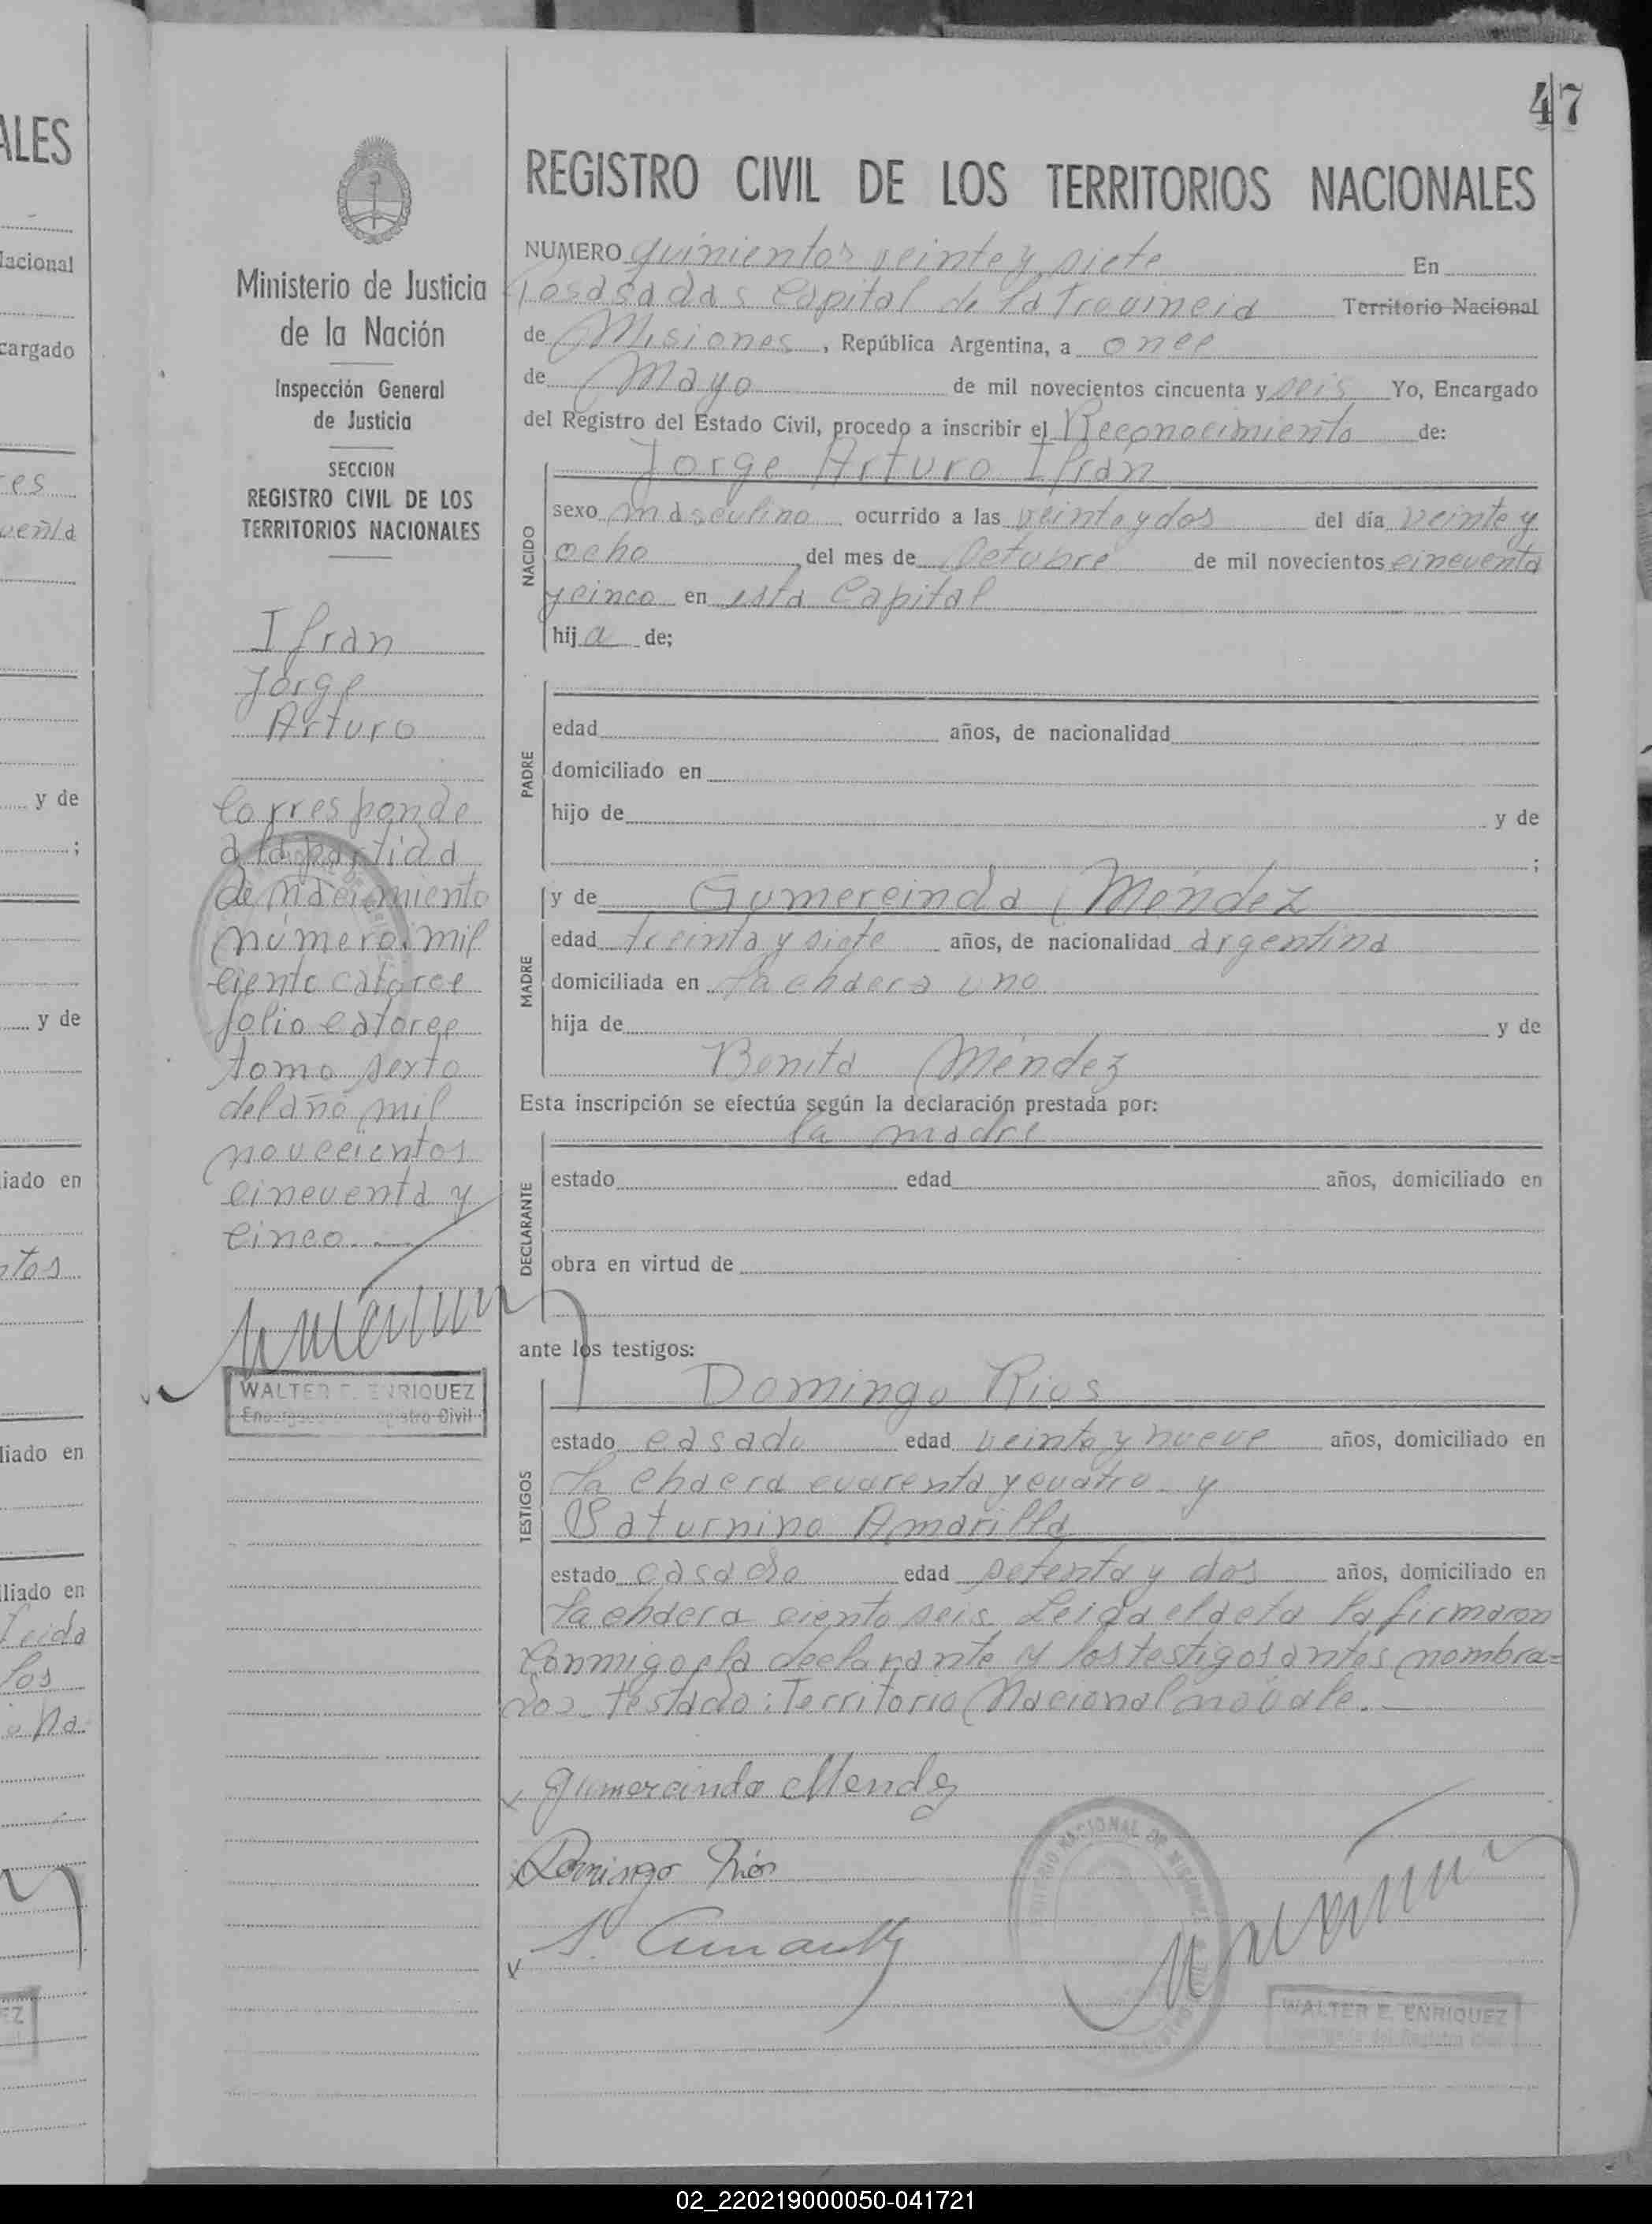 47
ALES
Nacional
cargado
res
y de
y de
iado en
ntos
liado en
liado en
leida
los
EZ
Ministerio de Justicia
de la Nación
Inspección General
de Justicia
SECCION
REGISTRO CIVIL DE LOS
TERRITORIOS NACIONALES
Ifran
Jorge
Arturo
Corresponde
a la partida
de nacimiento
número mil
ciento catorce
folio catorce
tomo sexto
del año mil
novecientos
cincuenta y
cinco.
WALTER E. ENRIQUEZ
Encargado del Registro Civil
REGISTRO CIVIL DE LOS TERRITORIOS NACIONALES
NUMERO quinientos veinte y siete En
Posadas Capital de la Provincia Territorio Nacional
de Misiones, República Argentina, a once
de Mayo de mil novecientos cincuenta y seis Yo, Encargado
del Registro del Estado Civil, procedo a inscribir el Reconocimiento de:
Jorge Arturo Ifran
NACIDO
sexo masculino ocurrido a las veinte y dos del día veinte y
ocho del mes de Octubre de mil novecientos cincuenta
y cinco en esta Capital
hij a de;
PADRE
edad años, de nacionalidad
domiciliado en
hijo de y de
;
MADRE
y de Gumercinda Méndez
edad treinta y siete años, de nacionalidad argentina
domiciliada en la chacra uno
hija de y de
Benita Méndez
Esta inscripción se efectúa según la declaración prestada por:
la madre
DECLARANTE
estado edad años, domiciliado en
obra en virtud de
ante los testigos:
TESTIGOS
Domingo Rios
estado casado edad veinte y nueve años, domiciliado en
la chacra cuarenta y cuatro y
Saturnino Amarilla
estado casado edad setenta y dos años, domiciliado en
la chacra ciento seis. Leida el acta la firmaron
conmigo la declarante y los testigos antes nombra=
dos. Testado: Territorio Nacional no vale.
Gumercinda Mendez
Domingo Rios
S. Amarilla
WALTER E. ENRIQUEZ
Encargado del Registro Civil
02_220219000050-041721